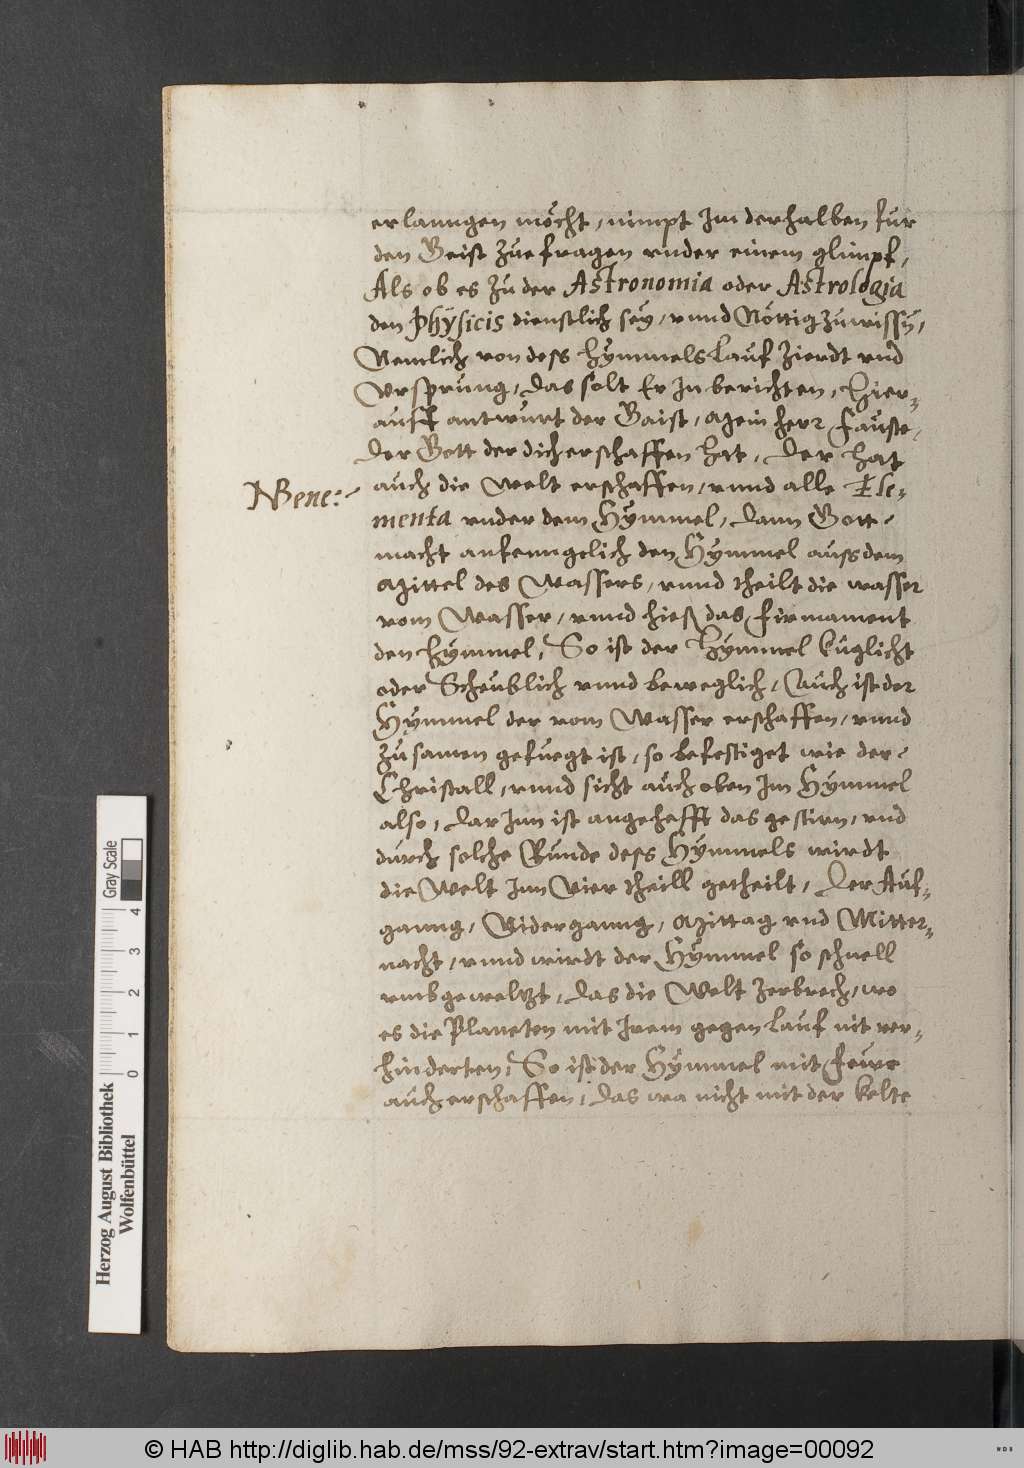 erlanngen möcht, nimpt Im derhalben für
den Geist zue fragen vnder einem glimpf,
Als ob es zu der Astronomia oder Astrologia
den Physicis dienstlich sey, vnnd Nöttig zuwissen,
Nemlich von dess Hymmels Lauf Zierdt vnd
Vrsprung, Das solt Er In berichten, Hier-
auff antwurt der Gaist, Mein herr Fauste,
Der Gott der dich erschaffen hat, Der hat
auch die Welt erschaffen, vnnd alle Ele-
NBene:
menta vnder dem Hymmel, Dann Gott
macht anfenngelich den Hymmel auss dem
Mittel des Wassers, vnnd theilt die wasser
vom Wasser, vnnd hieß das Firmament
den Hymmel, So ist der Hymmel kuglicht
oder Scheublich vnnd beweglich, Auch ist der
Hymmel der vom Wasser erschaffen, vnnd
zusamen gefuegt ist, so befestiget wie der
Christall, vnnd sicht auch oben Im Hymmel
also, Dar Inn ist angehefft das gestirn, vnd
durch solche Runde dess Hymmels wirdt
die Welt Inn Vier theill getheilt, Der Auf-
ganng, Nidergang, Mittag vnd Mitter-
nacht, vnnd wirdt der Hymmel so schnell
vmbgeweltzt, Das die Welt Zerbrech, wo
es die Planeten mit Irem gegen Lauf nit ver-
hinderten, So ist der Hymmel mit Fewr
auch erschaffen, Das wa nicht mit der kelte
Gray Scale
0 1 2 3 4
Herzog August Bibliothek
Wolfenbüttel
© HAB http://diglib.hab.de/mss/92-extrav/start.htm?image=00092